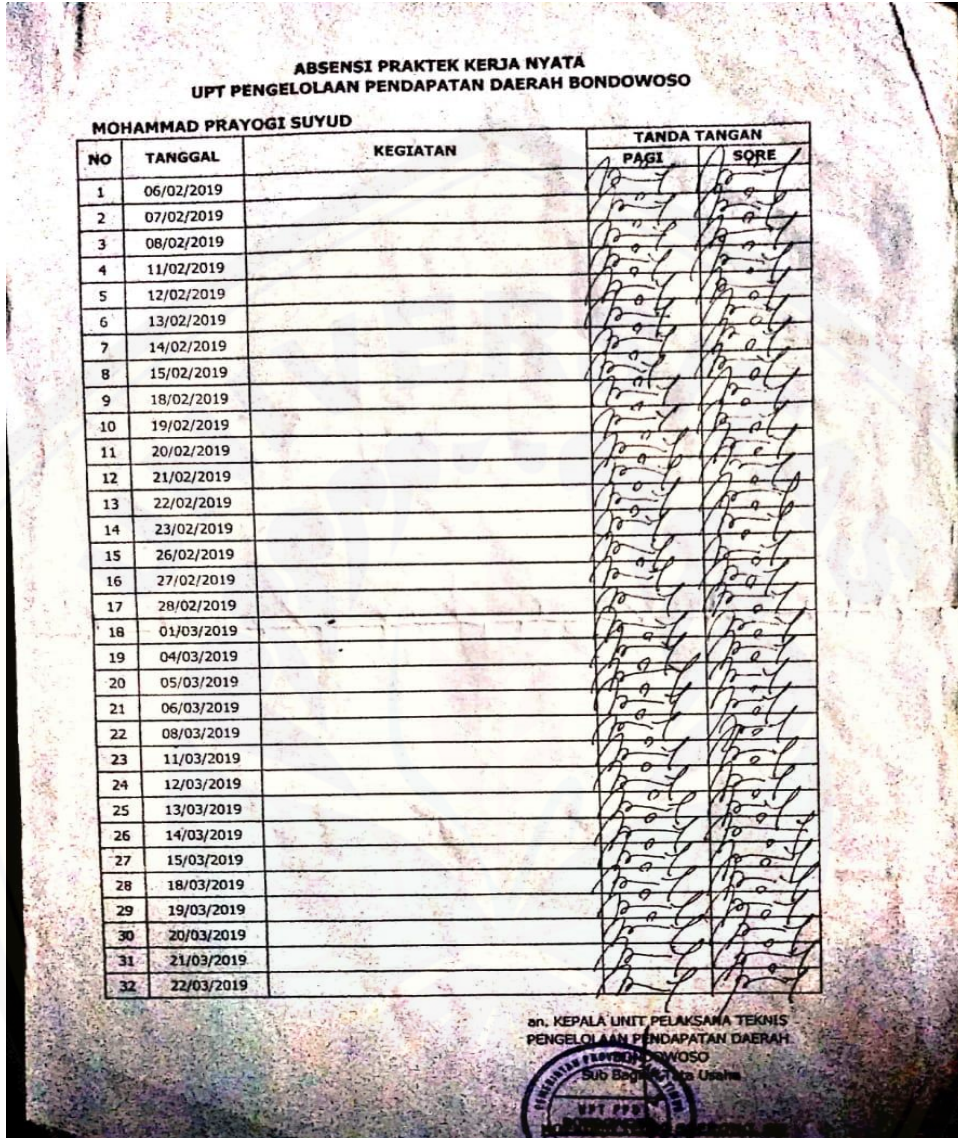 ABSENSI PRAKTEK KERJA NYATA
UPT PENGELOLAAN PENDAPATAN DAERAH BONDOWOSO
MOHAMMAD PRAYOGI SUYUD
NO TANGGAL KEGIATAN TANDA TANGAN
PAGI SORE
1 06/02/2019
2 07/02/2019
3 08/02/2019
4 11/02/2019
5 12/02/2019
6 13/02/2019
7 14/02/2019
8 15/02/2019
9 18/02/2019
10 19/02/2019
11 20/02/2019
12 21/02/2019
13 22/02/2019
14 23/02/2019
15 26/02/2019
16 27/02/2019
17 28/02/2019
18 01/03/2019
19 04/03/2019
20 05/03/2019
21 06/03/2019
22 08/03/2019
23 11/03/2019
24 12/03/2019
25 13/03/2019
26 14/03/2019
27 15/03/2019
28 18/03/2019
29 19/03/2019
30 20/03/2019
31 21/03/2019
32 22/03/2019
an. KEPALA UNIT PELAKSANA TEKNIS
PENGELOLAAN PENDAPATAN DAERAH
BONDOWOSO
Sub Bagian Tata Usaha
UPT PPD